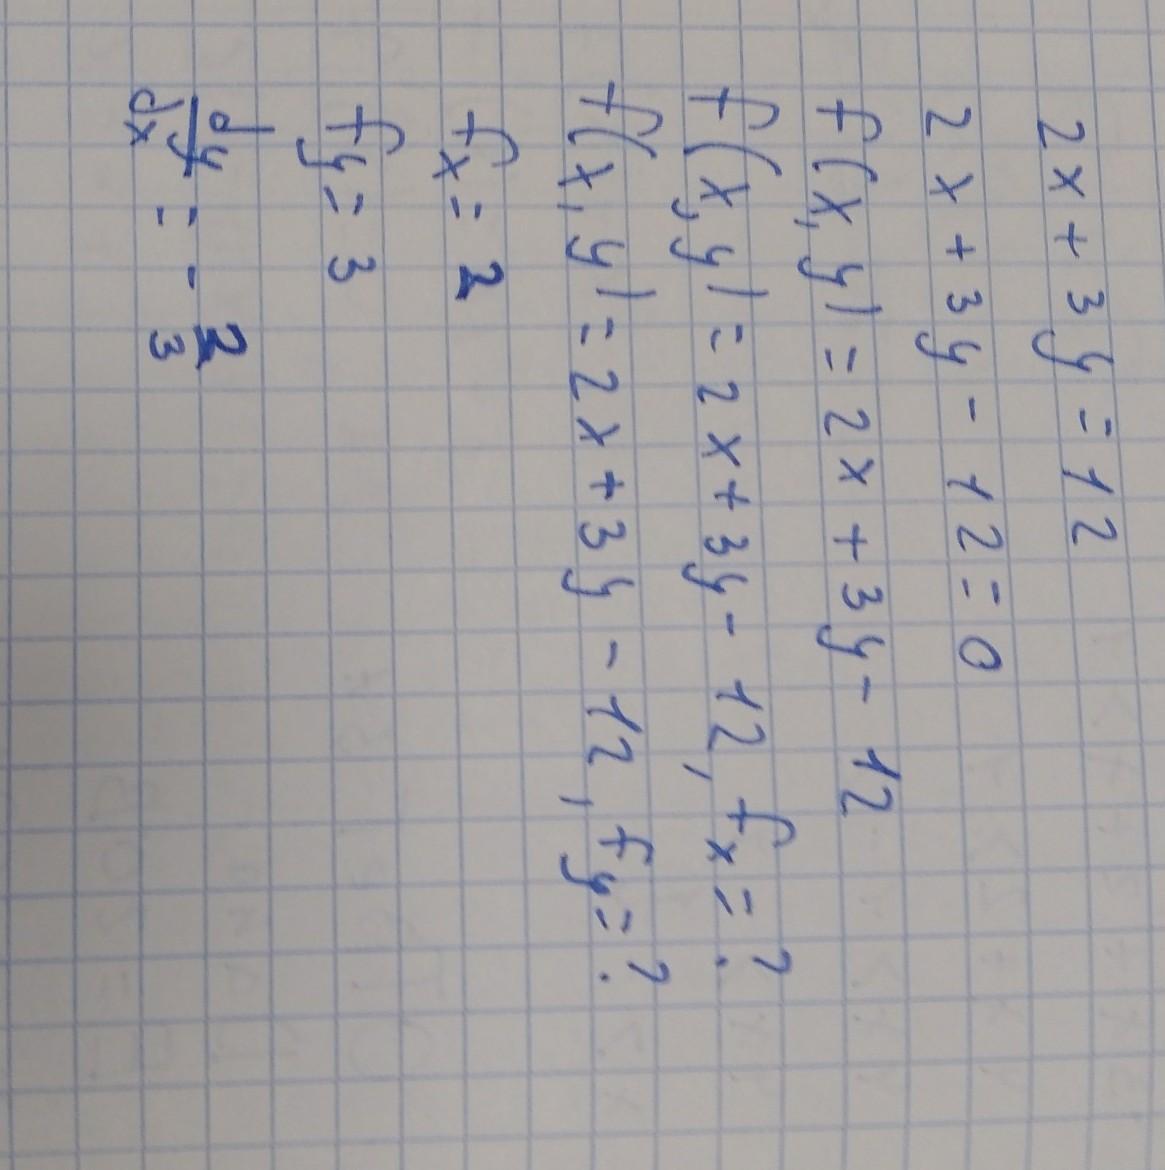 2x + 3y = 12
2x + 3y - 12 = 0
f(x, y) = 2x + 3y - 12
f(x, y) = 2x + 3y - 12, fx = ?
f(x, y) = 2x + 3y - 12, fy = ?
fx = 2
fy = 3
dy/dx = - 2/3